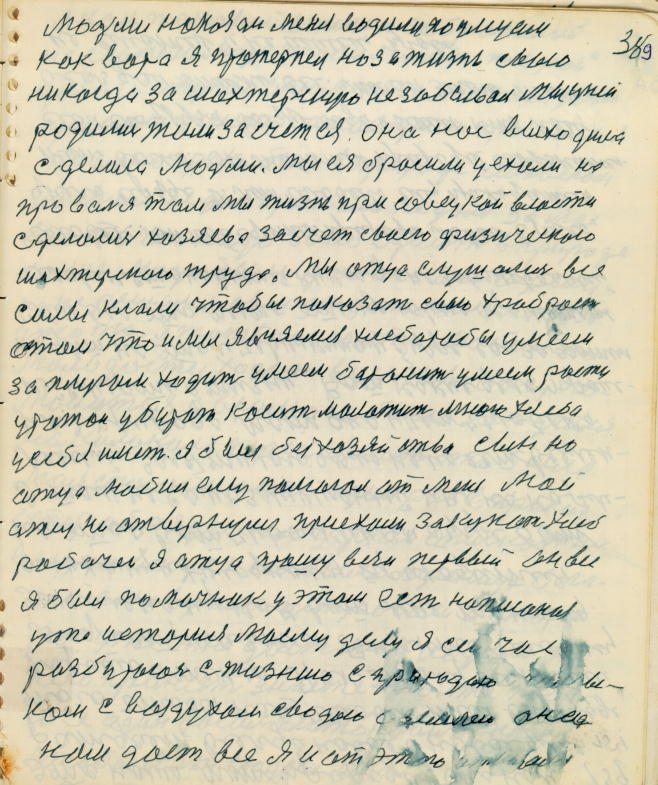 389
людми показан меня водили по улицам
как вора я протерпел но за жизнь свою
никогда за шахтерскую незабывал Мы у ней
родилис жили за счет ея. она нас выходила
сделала людми. мы ея бросили уехали на
провалля там мы жизнь при совецкой власти
сделалис хозяева засчет своего физического
шахтерского труда. Мы отца слушалис все
силы клали чтобы показат свою храброст
о том что и мы являемся хлебаробы умеем
за плугом ходит умеем баранит умеем расти
урожай убират косит молотит много хлеба
у себя имет. я был без хозяйства сын но
отца любил ему помогал от меня мой
отец не отвернулся приехали закупат хлеб
рабочем я отца прошу вези первый он вез
я был помочник у этом ест написаная
уже история моему делу я сей час
разбираюс с жизнею с природаю
ком с воздухом с водою с землею она
нам дает все я и от этого